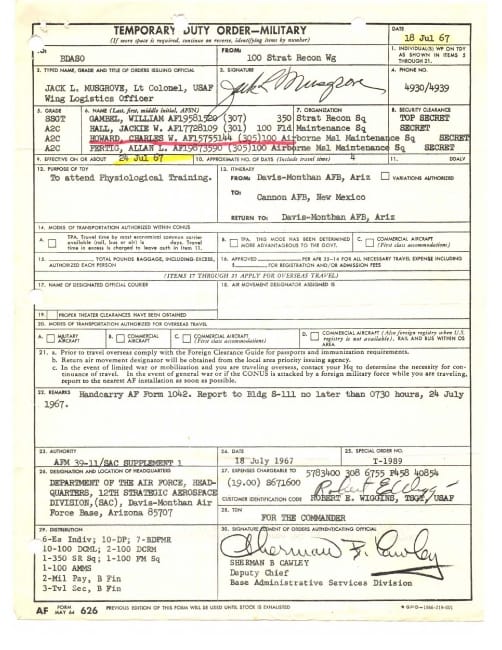 TEMPORARY DUTY ORDER—MILITARY
(If more space is required, continue on reverse, identifying items by number)
DATE
18 Jul 67
TO:
BDASO
FROM:
100 Strat Recon Wg
1. INDIVIDUAL(S) WP ON TDY AS SHOWN IN ITEMS 5 THROUGH 21.
2. TYPED NAME, GRADE AND TITLE OF ORDERS ISSUING OFFICIAL
JACK L. MUSGROVE, Lt Colonel, USAF
Wing Logistics Officer
3. SIGNATURE
Jack L Musgrove
4. PHONE
4930/4939
5. GRADE
6. NAME (Last, first, middle initial, AFSN)
7. ORGANIZATION
8. SECURITY CLEARANCE
SSGT GAMBEL, WILLIAM (307) 350 Strat Recon Sq TOP SECRET
A2C HALL, JACKIE W. AF17728109 (301) 100 Fld Maintenance Sq SECRET
A2C HOWARD, CHARLES W. AF15755144 (305)100 Airborne Msl Maintenance Sq SECRET
A2C FERTIG, ALLAN L. AF19873590 (305)100 Airborne Msl Maintenance Sq SECRET
9. EFFECTIVE ON OR ABOUT 24 Jul 67
10. APPROXIMATE NO. OF DAYS (Include travel time) 4
11. DDALV
12. PURPOSE OF TDY
To attend Physiological Training.
13. ITINERARY
FROM: Davis-Monthan AFB, Ariz
VARIATIONS AUTHORIZED
TO:
Cannon AFB, New Mexico
RETURN TO: Davis-Monthan AFB, Ariz
14. MODES OF TRANSPORTATION AUTHORIZED WITHIN CONUS
A. TPA. Travel time by most economical common carrier available (rail, bus or air) is days. Travel time in excess is charged to leave auth in Item 11.
B. TPA. THIS MODE HAS BEEN DETERMINED MORE ADVANTAGEOUS TO THE GOVT.
C. COMMERCIAL AIRCRAFT (First class accommodations)
15. TOTAL POUNDS BAGGAGE, INCLUDING EXCESS, AUTHORIZED EACH PERSON
16. APPROVED PER AFR 35-14 FOR ALL NECESSARY TRAVEL EXPENSE INCLUDING $ FOR REGISTRATION AND/OR ADMISSION FEES
(ITEMS 17 THROUGH 21 APPLY FOR OVERSEAS TRAVEL)
17. NAME OF DESIGNATED OFFICIAL COURIER
18. AIR MOVEMENT DESIGNATOR ASSIGNED IS
19. PROPER THEATER CLEARANCES HAVE BEEN OBTAINED
20. MODES OF TRANSPORTATION AUTHORIZED FOR OVERSEAS TRAVEL
A. MILITARY AIRCRAFT
B. COMMERCIAL AIRCRAFT
C. COMMERCIAL AIRCRAFT (First class accommodations)
D. COMMERCIAL AIRCRAFT (Also foreign registry when U.S. registry is not available), RAIL AND BUS WITHIN OS AREA
21. a. Prior to travel overseas comply with the Foreign Clearance Guide for passports and immunization requirements.
b. Return air movement designator will be obtained from the local area priority issuing agency.
c. In the event of limited war or mobilization and you are traveling overseas, contact your Hq to determine the necessity for continuance of travel. In the event of general war or if the CONUS is attacked by a foreign military force while you are traveling, report to the nearest AF installation as soon as possible.
22. REMARKS Handcarry AF Form 1042. Report to Bldg S-111 no later than 0730 hours, 24 July
1967.
23. AUTHORITY
AFM 39-11/SAC SUPPLEMENT 1
24. DATE
18 July 1967
25. SPECIAL ORDER NO.
T-1989
26. DESIGNATION AND LOCATION OF HEADQUARTERS
DEPARTMENT OF THE AIR FORCE, HEAD-
QUARTERS, 12TH STRATEGIC AEROSPACE
DIVISION,(SAC), Davis-Monthan Air
Force Base, Arizona 85707
27. EXPENSES CHARGEABLE TO
5783400 308 6755 P458 40854
(19.00) S671600
CUSTOMER IDENTIFICATION CODE
ROBERT E. WIGGINS, TSGT, USAF
28. TDN
FOR THE COMMANDER
29. DISTRIBUTION
6-Ea Indiv; 10-DP; 7-BDFMR
10-100 DCML; 2-100 DCRM
1-350 SR Sq; 1-100 FM Sq
1-100 AMMS
2-Mil Pay, B Fin
3-Tvl Sec, B Fin
30. SIGNATURE ELEMENT OF ORDERS AUTHENTICATING OFFICIAL
Sherman B Cawley
SHERMAN B CAWLEY
Deputy Chief
Base Administrative Services Division
AF FORM MAY 64 626
PREVIOUS EDITION OF THIS FORM WILL BE USED UNTIL STOCK IS EXHAUSTED